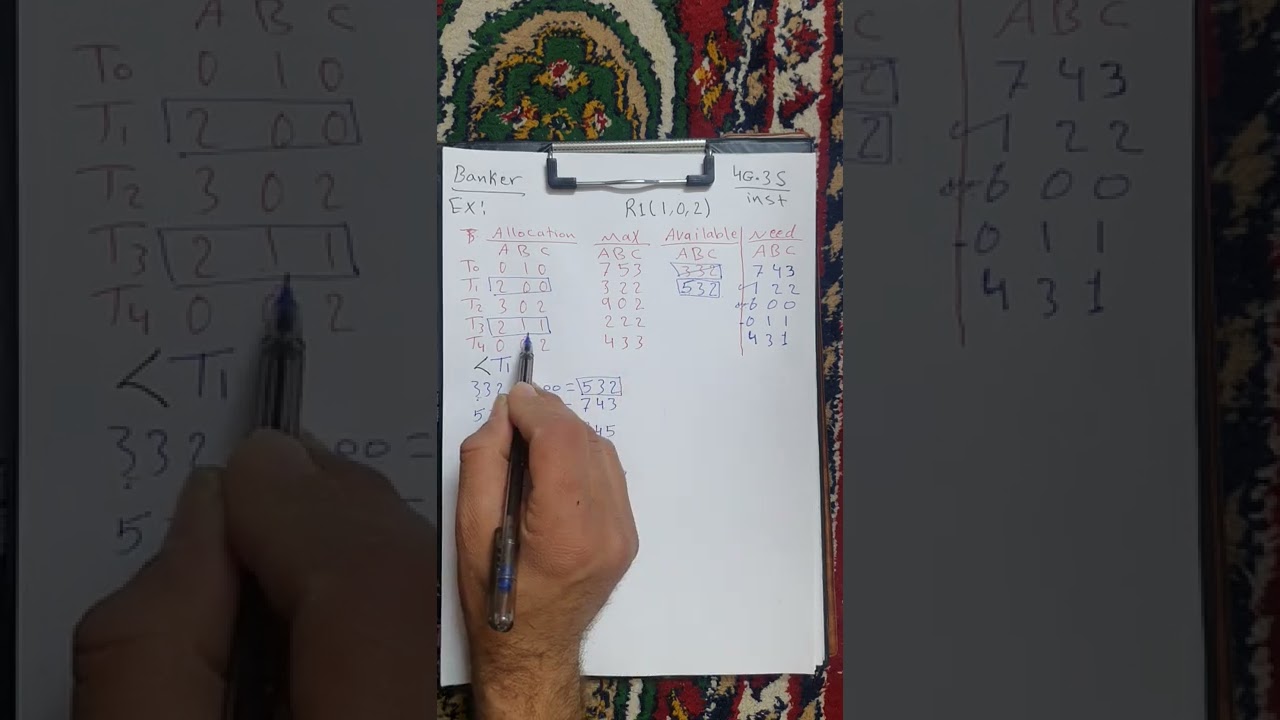 Banker 4G.3S
inst
Ex: R1(1,0,2)
T Allocation Max Available Need
A B C A B C A B C A B C
T0 0 1 0 7 5 3 3 3 2 7 4 3
T1 2 0 0 3 2 2 5 3 2 1 2 2
T2 3 0 2 9 0 2 6 0 0
T3 2 1 1 2 2 2 0 1 1
T4 0 0 2 4 3 3 4 3 1
<T1
332 00 = 532
5 = 743
45